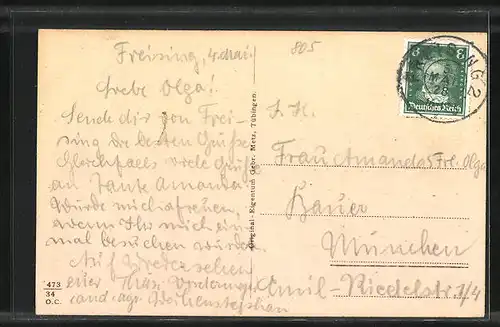 Freising, 4. Mai
805
Liebe Olga!
Sende dir von Frei-
sing die besten Grüße
Gleichfalls viele Grüße
an Tante Amanda.
Würde mich freuen,
wenn Ihr mich ein-
mal besuchen würdet.
Auf Wiedersehen
euer
cand. agr. Weihenstephan
473
34
O.C.
Original-Eigentum Gebr. Metz, Tübingen.
8 8
Deutsches Reich
FREISING 2
Frau Amanda & Frl. Olga
Bauer
München
Emil-Riedelstr. 1/4